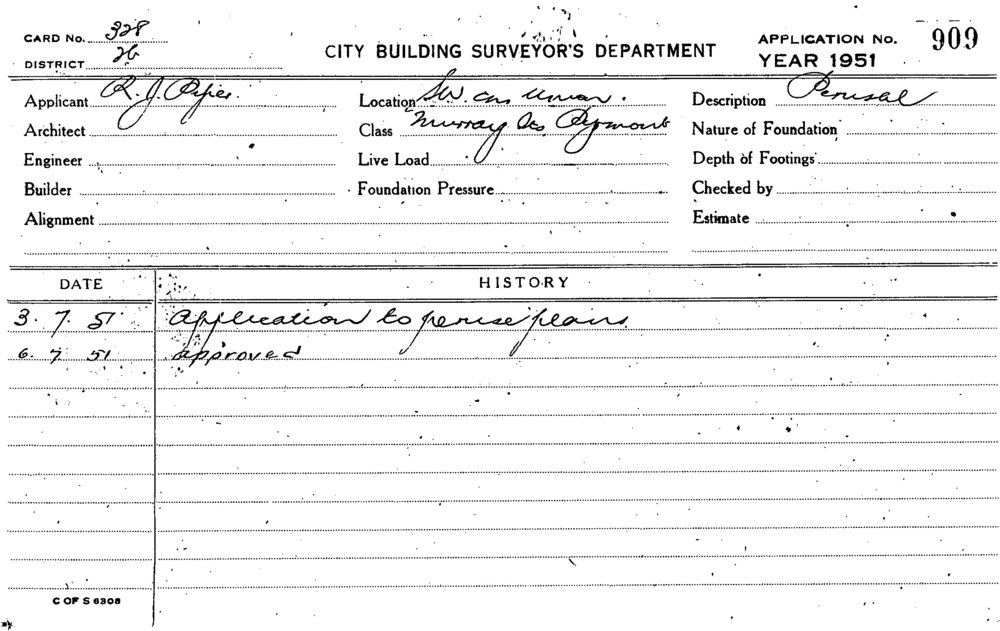 CARD No. 328
DISTRICT 26
CITY BUILDING SURVEYOR'S DEPARTMENT
APPLICATION No. 909
YEAR 1951
Applicant R. J. Piper.
Location SW. cnr Union.
Description Perusal
Architect
Class Murray Sts Pyrmont
Nature of Foundation
Engineer
Live Load
Depth of Footings
Builder
Foundation Pressure
Checked by
Alignment
Estimate
DATE HISTORY
3. 7. 51 Application to peruse plans
6. 7. 51 approved
C OF S 6308